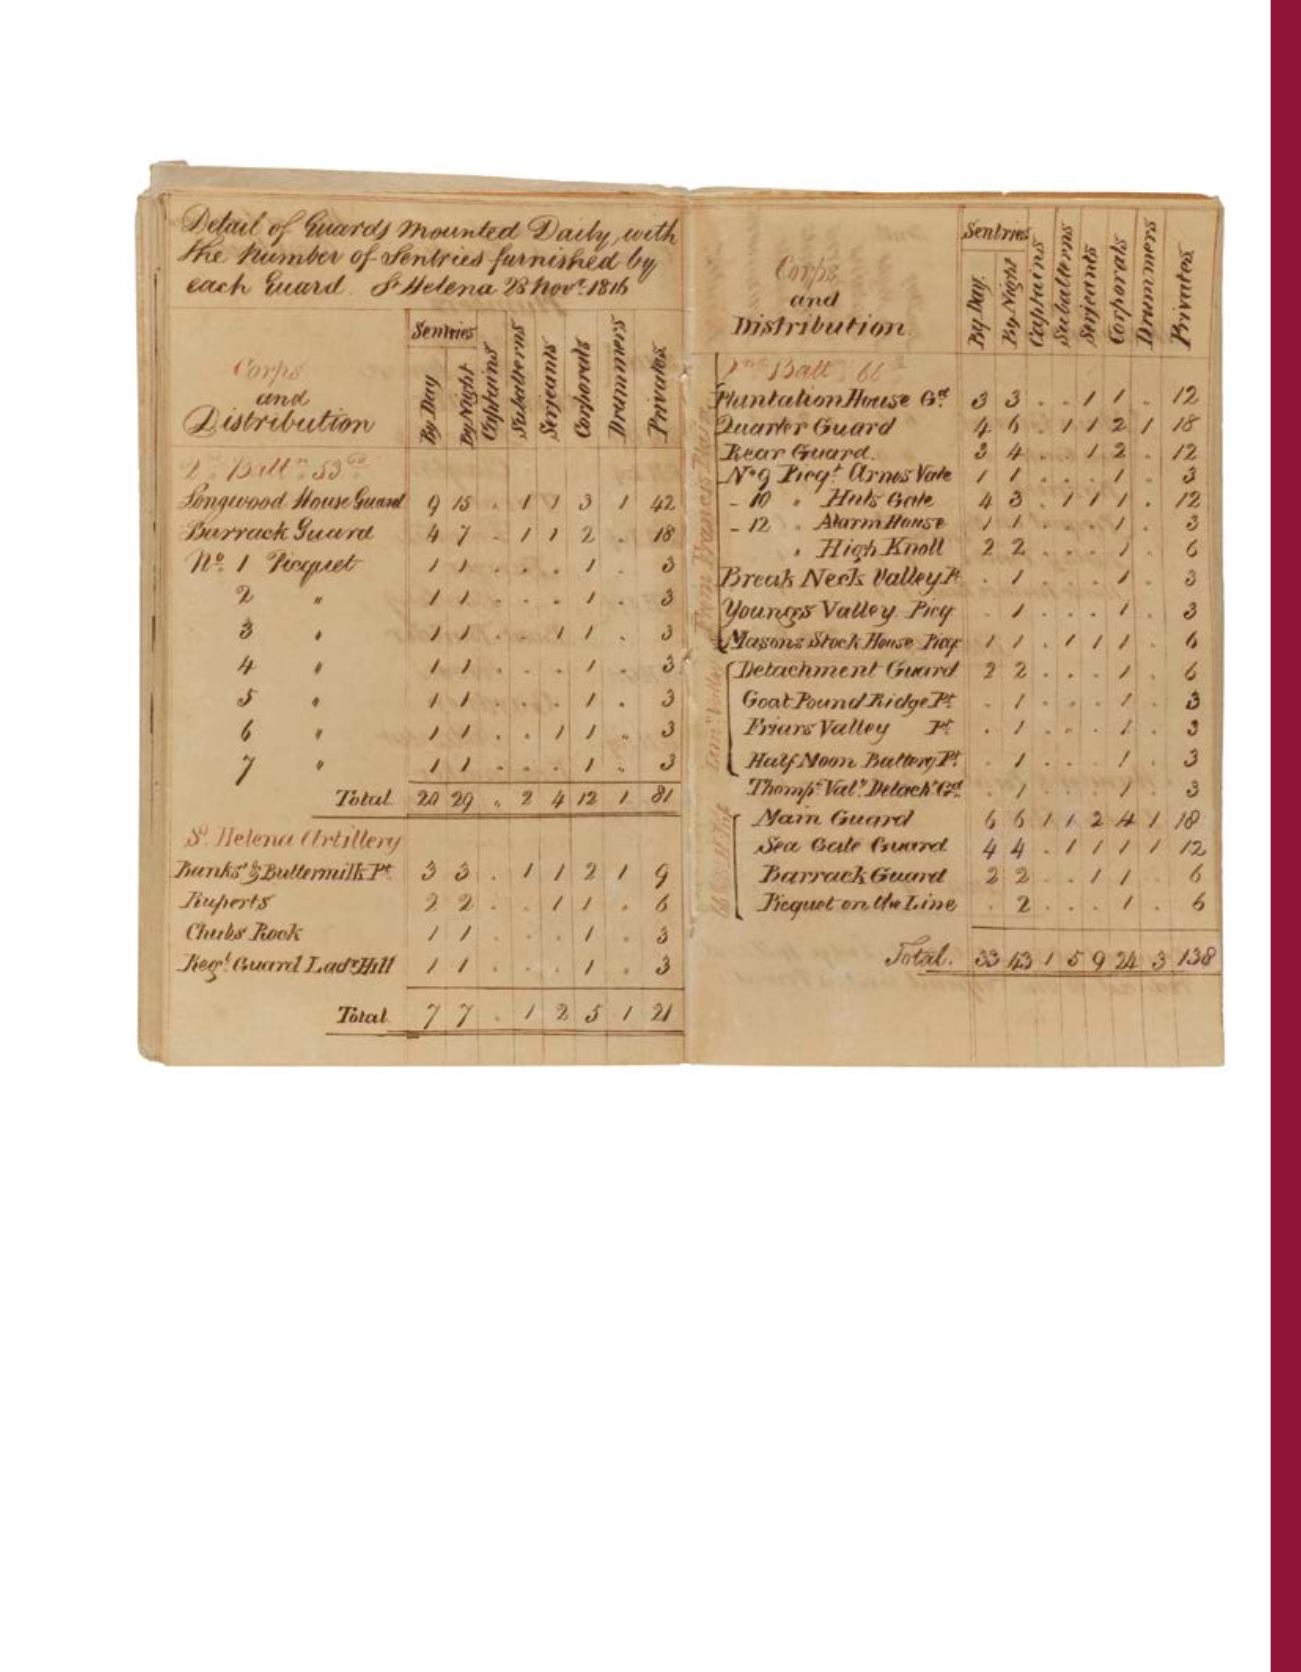 Detail of Guards mounted Daily, with
the Number of Sentries furnished by
each Guard. St Helena 28 Novr. 1816
Corps
and
Distribution
Sentries
By Day
By Night
Captains
Subalterns
Serjeants
Corporals
Drummers
Privates
2d. Battn. 53rd
Longwood House Guard 9 15 . 1 1 3 1 42
Barrack Guard 4 7 . 1 1 2 . 18
No. 1 Picquet 1 1 . . . 1 . 3
2 " 1 1 . . . 1 . 3
3 " 1 1 . . 1 1 . 3
4 " 1 1 . . . 1 . 3
5 " 1 1 . . . 1 . 3
6 " 1 1 . . 1 1 . 3
7 " 1 1 . . . 1 . 3
Total 20 29 . 2 4 12 1 81
St. Helena Artillery
Banks's & Buttermilk Pt. 3 3 . 1 1 2 1 9
Ruperts 2 2 . . 1 1 . 6
Chubs Rock 1 1 . . . 1 . 3
Regt. Guard Ladr Hill 1 1 . . . 1 . 3
Total 7 7 . 1 2 5 1 21
Corps
and
Distribution
Sentries
By Day
By Night
Captains
Subalterns
Serjeants
Corporals
Drummers
Privates
Batt. 66
Plantation House Gd. 3 3 . . 1 1 . 12
Quarter Guard 4 6 . 1 1 2 1 18
Rear Guard. 3 4 . . 1 2 . 12
No 9 Picqt. Arnos Vale 1 1 . . . 1 . 3
- 10 " Huts Gate 4 3 . 1 1 1 . 12
- 12 . Alarm House 1 1 . . . 1 . 3
. High Knoll 2 2 . . . 1 . 6
Break Neck Valley P. . 1 . . . 1 . 3
Youngs Valley. Picq . 1 . . . 1 . 3
Masons Stock House Picq 1 1 . 1 1 1 . 6
Detachment Guard 2 2 . . . 1 . 6
Goat Pound Ridge Pt. . 1 . . . 1 . 3
Friars Valley Pt. . 1 . . . 1 . 3
Half Moon Battery Pt. . 1 . . . 1 . 3
Thomps. Valy. Detacht Gd. . 1 . . . 1 . 3
Main Guard 6 6 1 1 2 4 1 18
Sea Gate Guard 4 4 . 1 1 1 1 12
Barrack Guard 2 2 . . 1 1 . 6
Picquet on the Line . 2 . . . 1 . 6
Total. 33 43 1 5 9 24 3 138